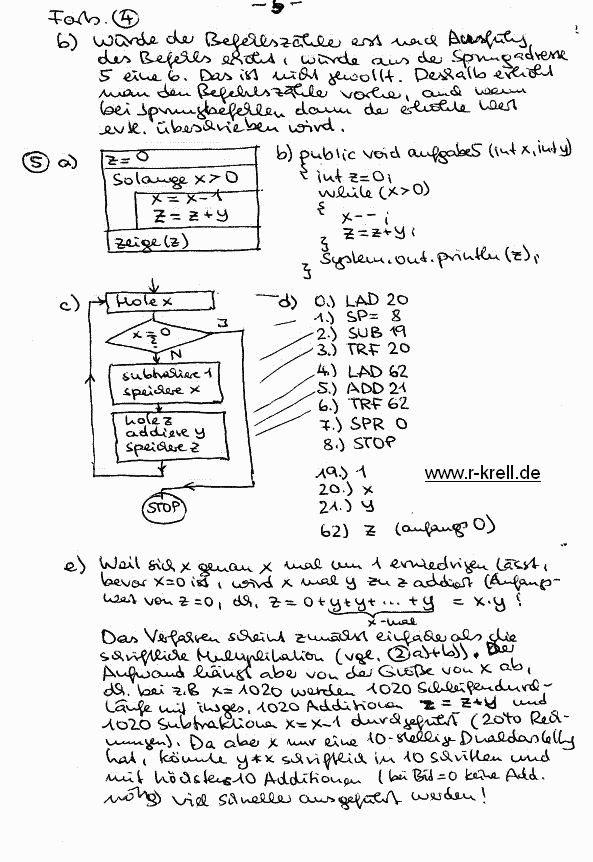 - 5 -
Forts. ④
b) Würde der Befehlszähler erst nach Ausführg.
des Befehls erhöht, würde aus der Sprungadresse
5 eine 6. Das ist nicht gewollt. Deshalb erhöht
man den Befehlszähler vorher, auch wenn
bei Sprungbefehlen dann der erhöhte Wert
evtl. überschrieben wird.
⑤ a)
z = 0
Solange x > 0
x = x - 1
z = z + y
zeige (z)
b) public void aufgabe5 (int x, int y)
{ int z=0;
while (x>0)
{
x-- ;
z = z+y;
}
System.out.println (z);
}
c)
Hole x
x = 0
?
J
N
subtrahiere 1
speichere x
hole z
addiere y
speichere z
STOP
d) 0.) LAD 20
1.) SP= 8
2.) SUB 19
3.) TRF 20
4.) LAD 62
5.) ADD 21
6.) TRF 62
7.) SPR 0
8.) STOP
19.) 1
20.) x
21.) y
62) z (anfangs 0)
www.r-krell.de
e) Weil sich x genau x mal um 1 erniedrigen lässt,
bevor x=0 ist, wird x mal y zu z addiert (Anfangs-
wert von z=0, d.h. z = 0+y+y+ ... +y = x·y !
x-mal
Das Verfahren scheint zunächst einfacher als die
schriftliche Multiplikation (vgl. ② a)+b)). Der
Aufwand hängt aber von der Größe von x ab,
d.h. bei z.B x = 1020 werden 1020 Schleifendurch-
läufe mit insges. 1020 Additionen z = z+y und
1020 Subtraktionen x = x-1 durchgeführt (2040 Rech-
nungen). Da aber x nur eine 10-stellige Dualdarstellg
hat, könnte y*x schriftlich in 10 Schritten und
mit höchstens 10 Additionen (bei Bit=0 keine Add.
nötig) viel schneller ausgeführt werden!